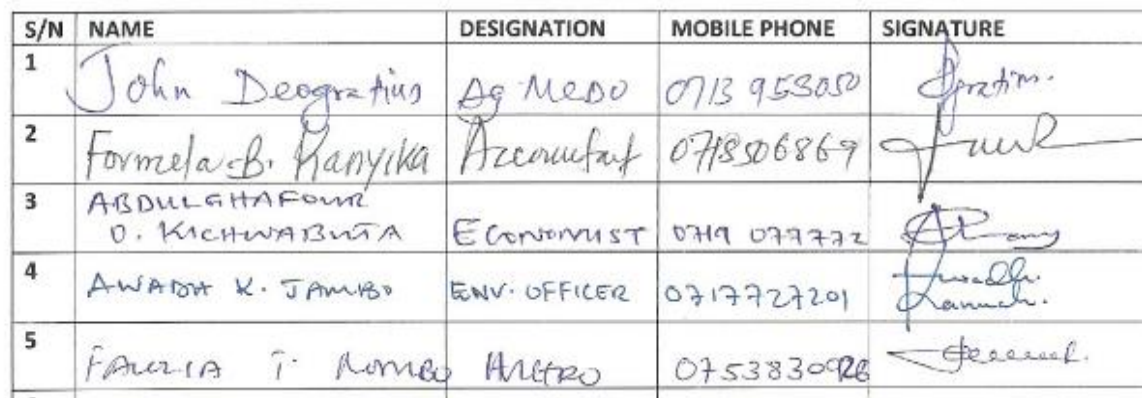 S/N NAME DESIGNATION MOBILE PHONE SIGNATURE
1 John Deogratius Ag MEDO 0713 953050
2 Formela B. Kanyika Accountant 0718506869
3 ABDULGHAFOUR
O. KICHWABUTA ECONOMIST 0719 077772
4 AWADH K. JAMBO ENV. OFFICER 0717727201
5 FAUZIA T. ROMBO